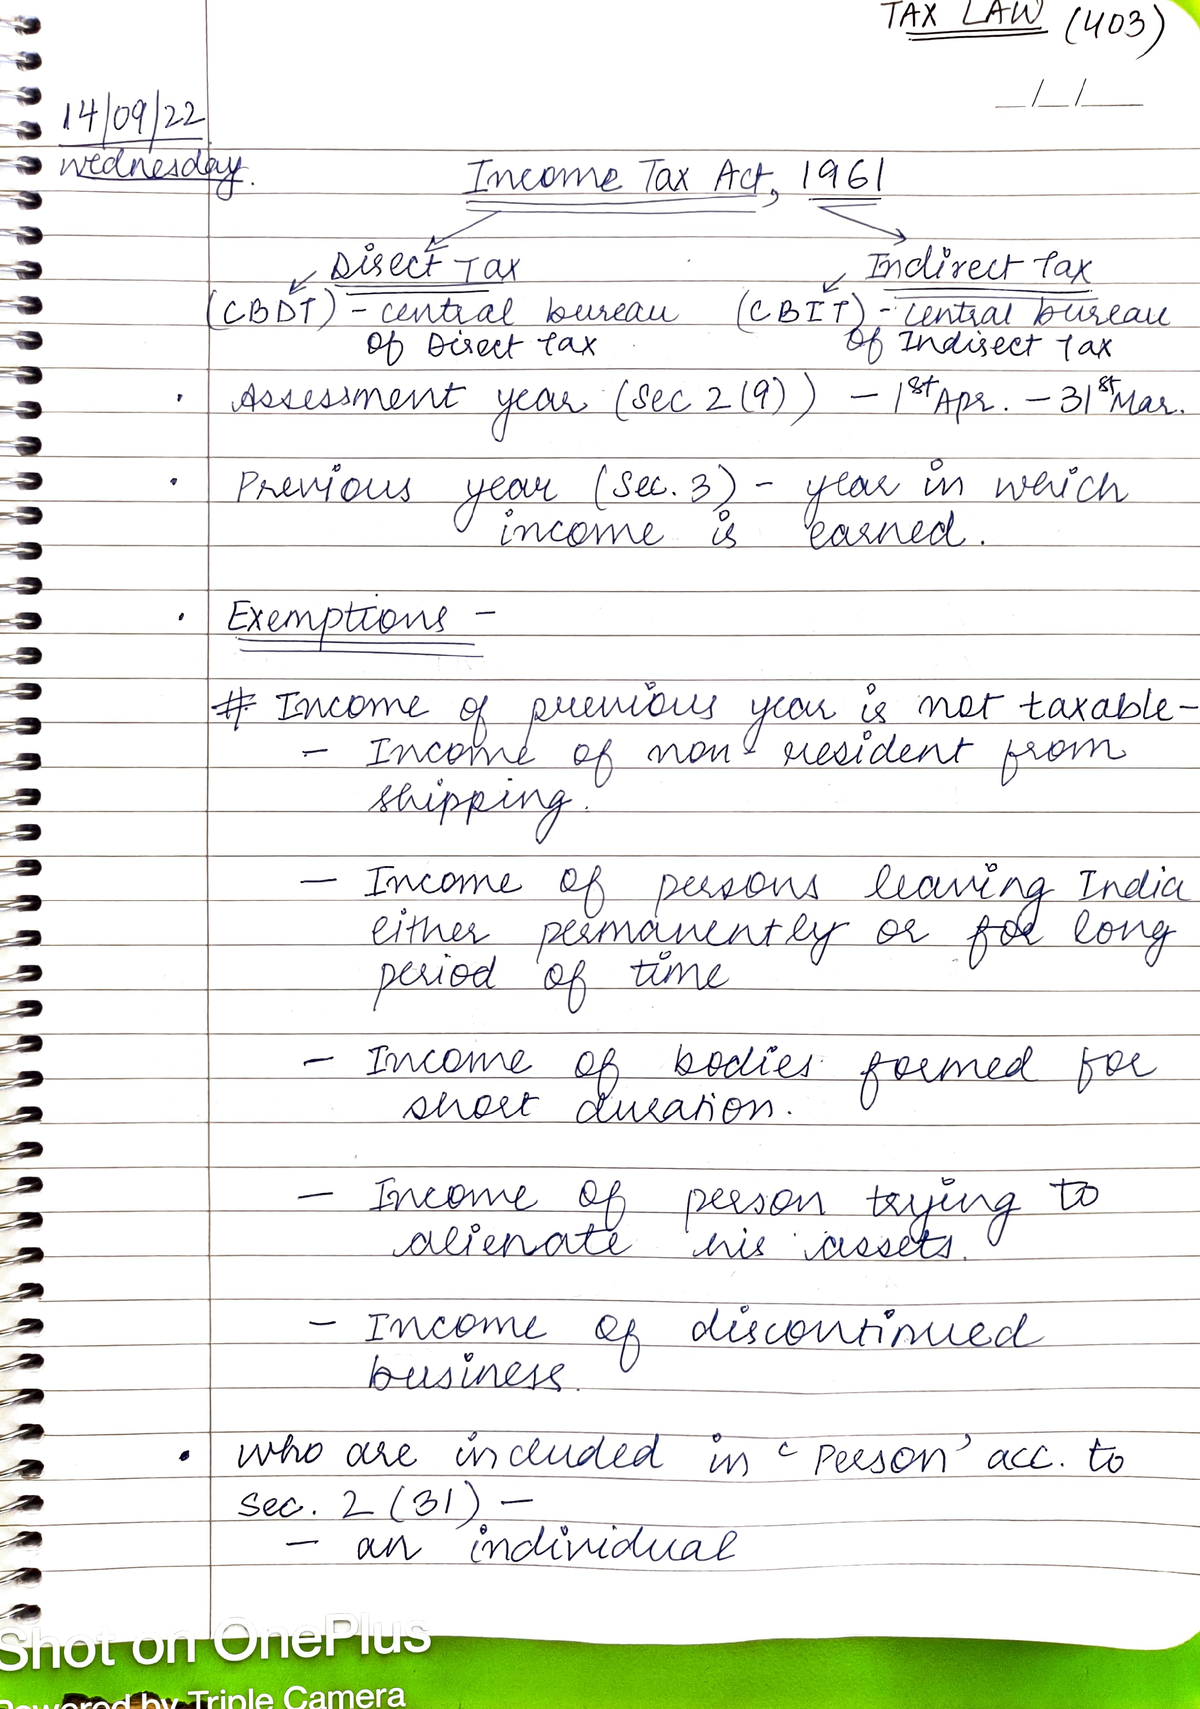 TAX LAW (403)
__/__/____
14/09/22
wednesday.
Income Tax Act, 1961
Direct Tax
Indirect Tax
(CBDT) - central bureau
of Direct Tax
(CBIT) - central bureau
of Indirect Tax
• Assessment year (Sec 2(9)) – 1st Apr. – 31st Mar.
• Previous year (Sec. 3) - year in which
income is earned.
• Exemptions -
# Income of previous year is not taxable-
- Income of non-resident from
shipping.
- Income of persons leaving India
either permanently or for long
period of time
- Income of bodies formed for
short duration.
- Income of person trying to
alienate his assets.
- Income of discontinued
business.
• who are included in 'Person' acc. to
Sec. 2 (31) -
- an individual
Shot on OnePlus
Powered by Triple Camera